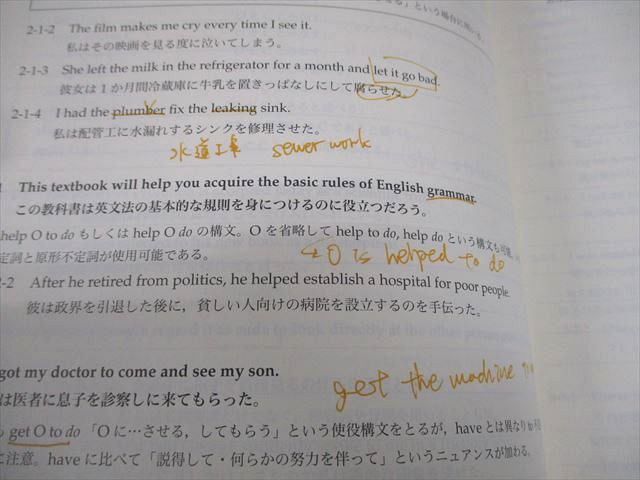 」という場合に用いる。
2-1-2 The film makes me cry every time I see it.
私はその映画を見る度に泣いてしまう。
2-1-3 She left the milk in the refrigerator for a month and let it go bad.
彼女は1か月間冷蔵庫に牛乳を置きっぱなしにして腐らせた。
2-1-4 I had the plumber fix the leaking sink.
私は配管工に水漏れするシンクを修理させた。
水道工事 sewer work
This textbook will help you acquire the basic rules of English grammar.
この教科書は英文法の基本的な規則を身につけるのに役立つだろう。
help O to do もしくは help O do の構文。O を省略して help to do, help do という構文も可能
定詞と原形不定詞が使用可能である。
O is helped to do
-2 After he retired from politics, he helped establish a hospital for poor people.
彼は政界を引退した後に，貧しい人向けの病院を設立するのを手伝った。
got my doctor to come and see my son.
は医者に息子を診察しに来てもらった。
get the machine
get O to do「O に…させる，してもらう」という使役構文をとるが，have とは異なり to
に注意。have に比べて「説得して・何らかの努力を伴って」というニュアンスが加わる。